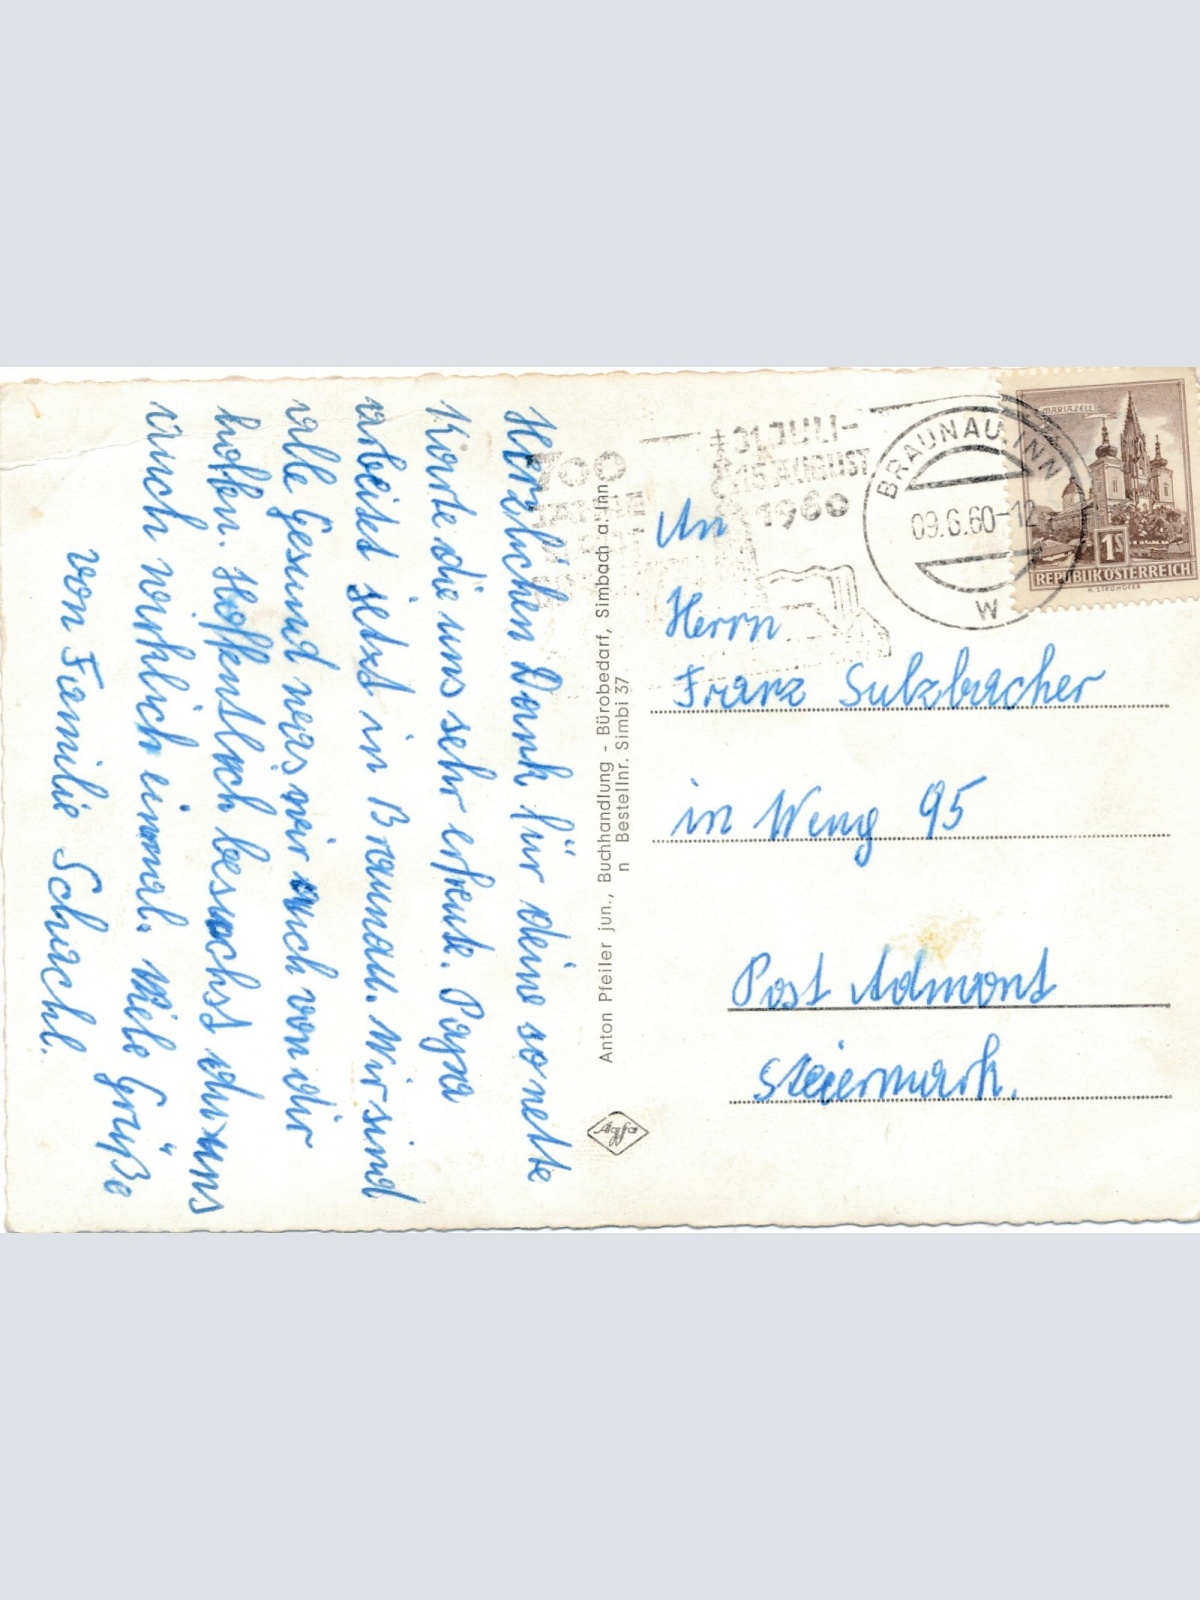 Herzlichen Dank für deine so nette
Karte die uns sehr erfreute. Papa
arbeitet jetzt in Braunau. Wir sind
alle Gesund was wir auch von dir
hoffen. Hoffentlich besuchst du uns
auch wirklich einmal. Viele Grüße
von Familie Schachl.
Anton Pfeiler jun., Buchhandlung - Bürobedarf, Simbach a. Inn
n Bestellnr. Simbi 37
Agfa
31 JULI-
15 AUGUST
1960
700
BRAUNAU INN
09.6.60-12
W
MARIAZELL
1S
REPUBLIK ÖSTERREICH
H. STROHOFER
An
Herrn
Franz Sulzbacher
in Weng 95
Post Admont
Steiermark.